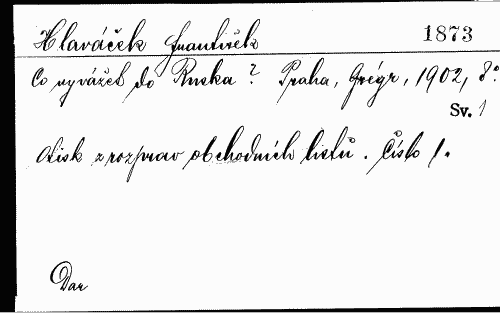 Hlaváček František 1873
Co vyvážeti do Ruska? Praha, Grégr, 1902, 8°.
Sv. 1
Otisk z rozprav obchodních listů. Číslo 1.
Dar